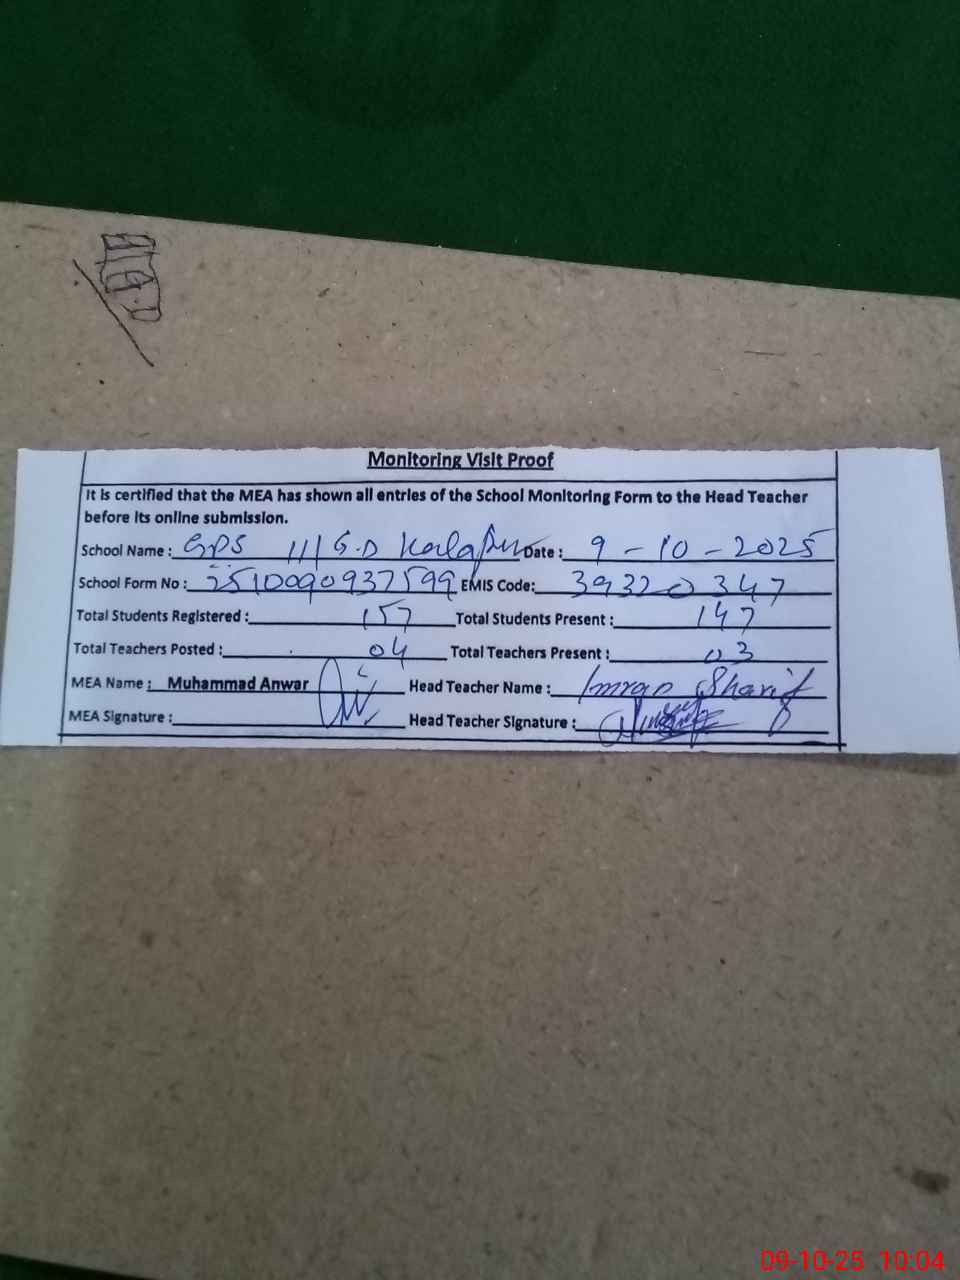 Monitoring Visit Proof
It is certified that the MEA has shown all entries of the School Monitoring Form to the Head Teacher
before its online submission.
School Name : GPS 111 G.D Kalapur Date : 9 - 10 - 2025
School Form No : 2510090937599 EMIS Code: 39320347
Total Students Registered : 157 Total Students Present : 147
Total Teachers Posted : 04 Total Teachers Present : 03
MEA Name : Muhammad Anwar Head Teacher Name : Imran Sharif
MEA Signature : Head Teacher Signature :
09-10-25 10:04